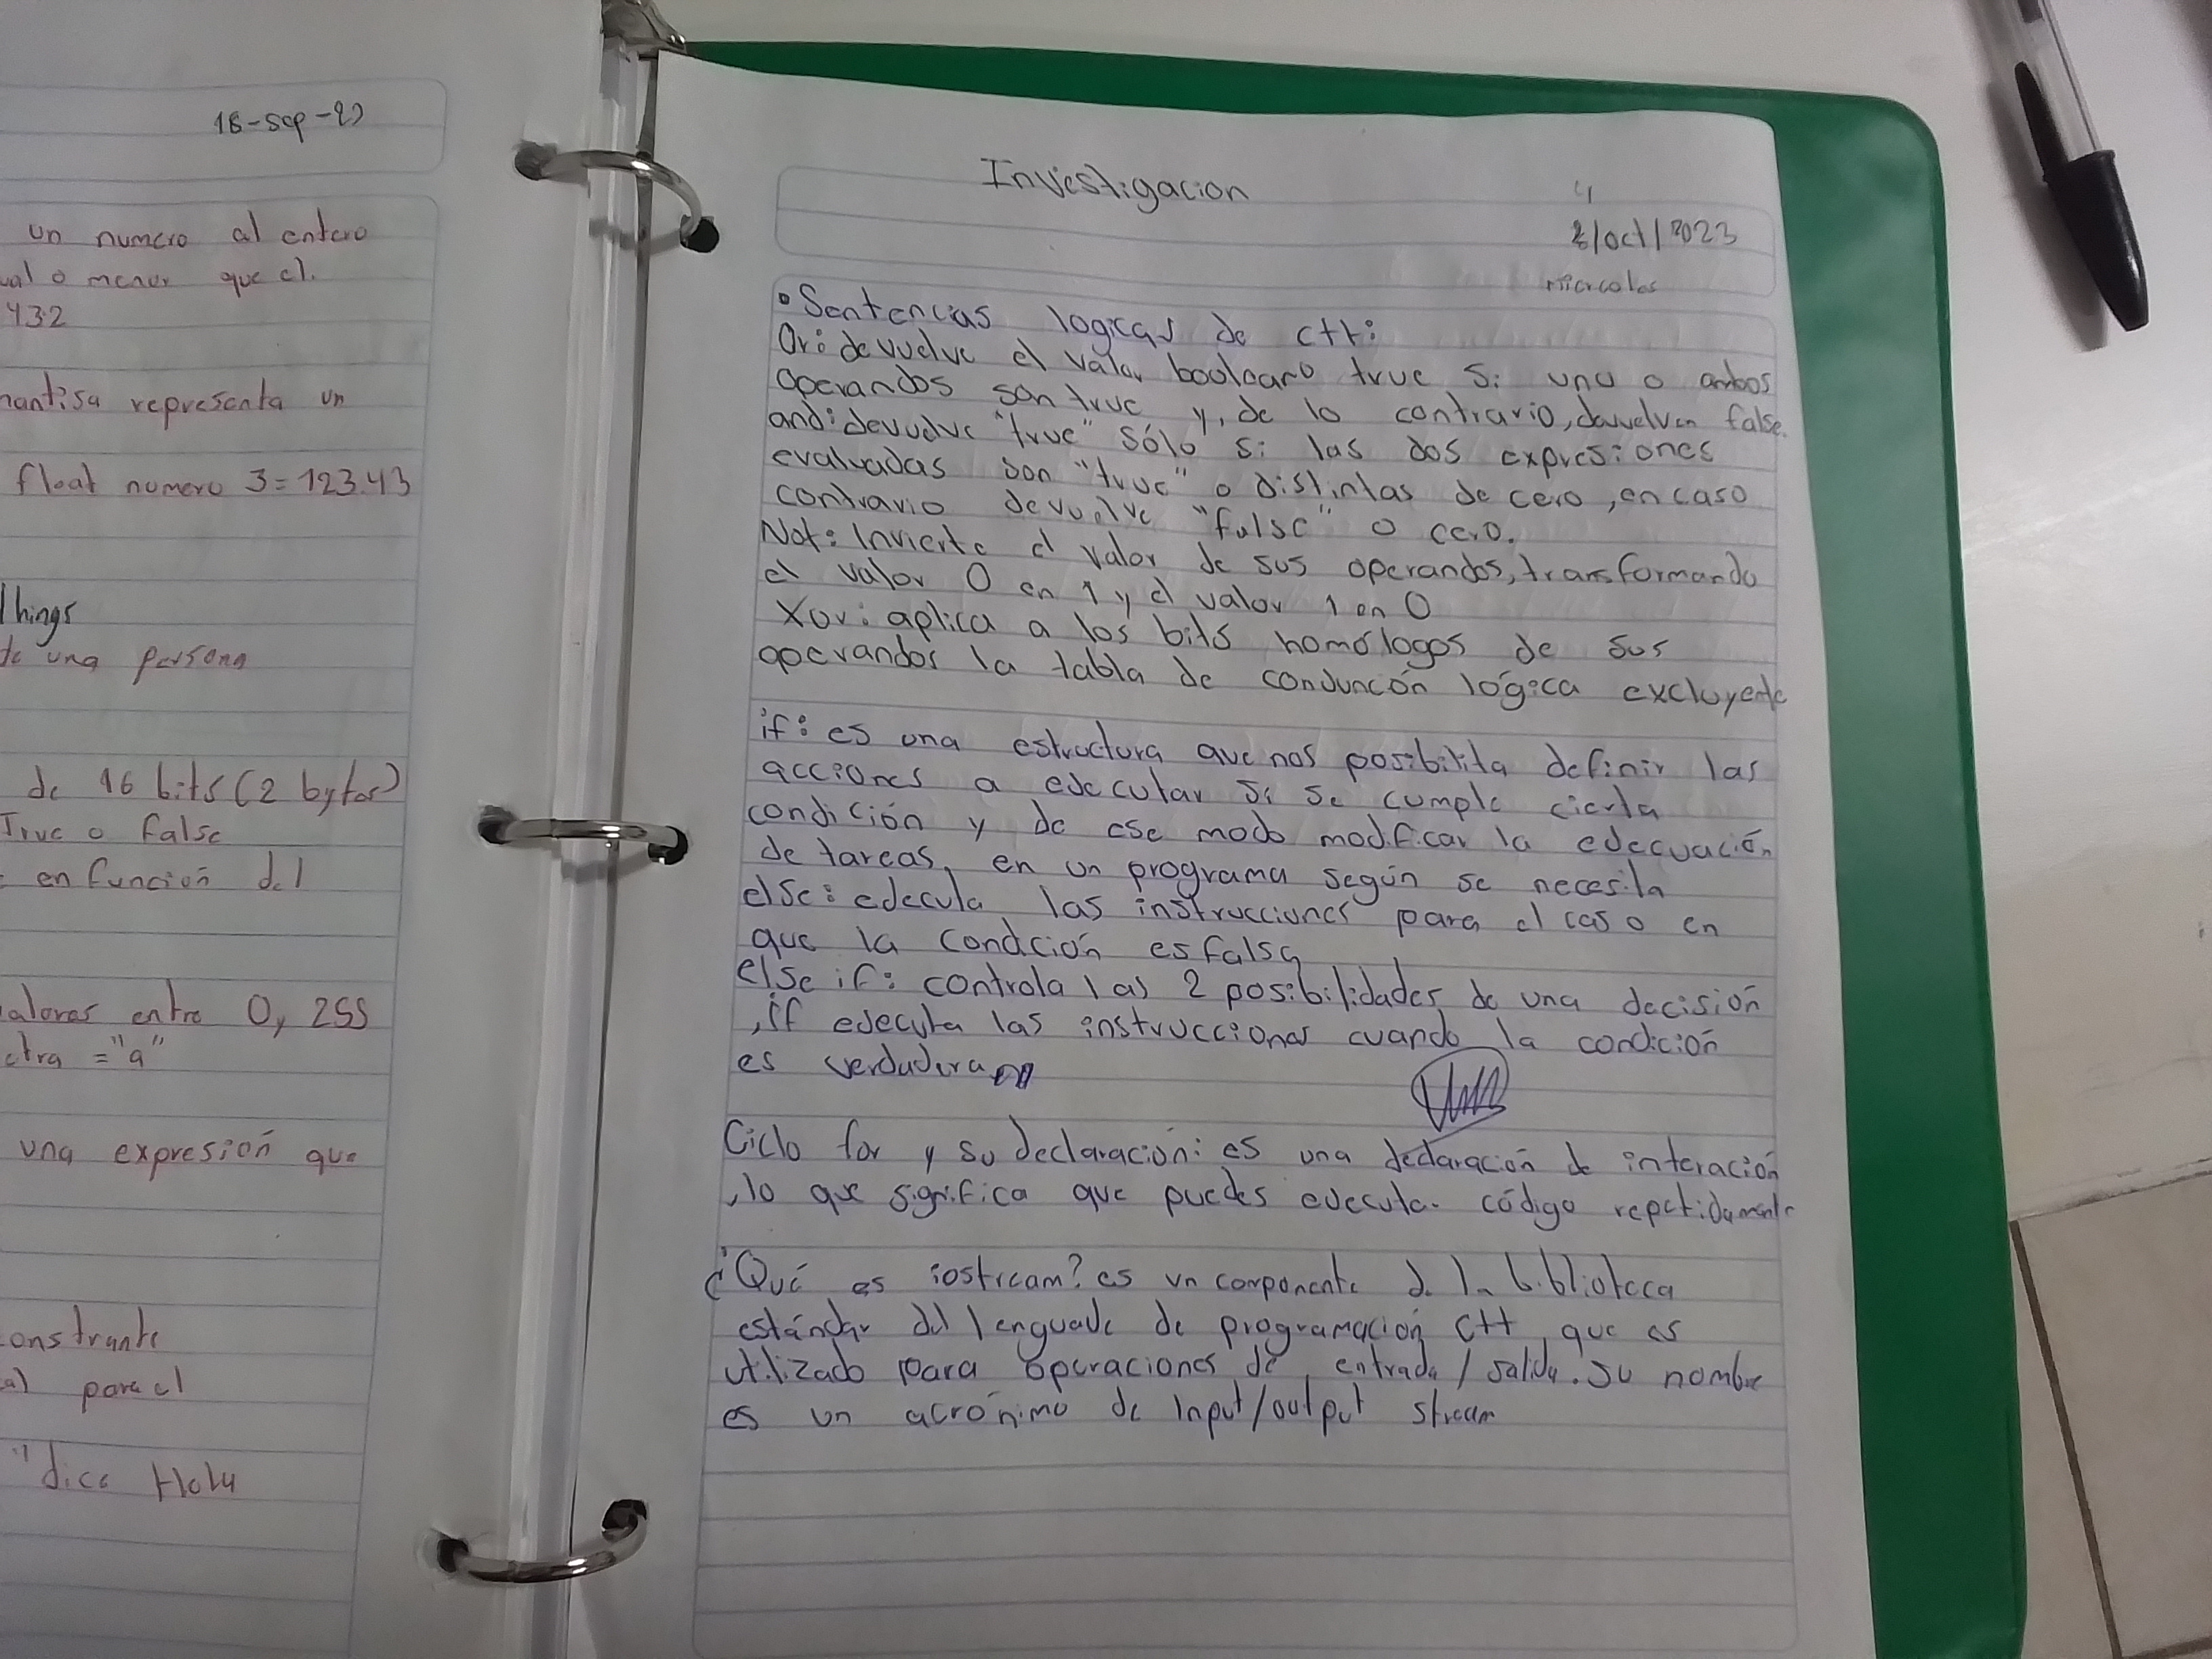 16-sep-2
un numero al entero
ual o menor que el.
432
mantisa representa un
float numero 3=123.43
Things
de una persona
de 16 bits (2 bytes)
True o False
en función del
alores entre 0, 255
etra = "a"
una expresión que
onstrante
a) para el
"dice Hola
Investigacion
4
/oct/2023
Miercoles
• Sentencias logicas de c++:
Or: devuelve el valor booleano true si uno o ambos
operandos son true y, de lo contrario, devuelven false.
and: devuelve "true" sólo si las dos expresiones
evaluadas son "true" o distintas de cero, en caso
contrario devuelve "false" o cero.
Not: Invierte el valor de sus operandos, transformando
el valor 0 en 1 y el valor 1 en 0
Xor: aplica a los bits homólogos de sus
operandos la tabla de conjunción lógica excluyente
if: es una estructura que nos posibilita definir las
acciones a ejecutar si se cumple cierta
condición y de ese modo modificar la ejecuación
de tareas, en un programa según se necesita
else: ejecuta las instrucciones para el caso en
que la condción es falsa
else if: controla las 2 posibilidades de una decisión
, if ejecuta las instrucciones cuando la condición
es verdadera
Ciclo for y su declaración: es una declaración de interación
, lo que significa que puedes ejecutar código repetidamente
¿Qué es iostream? es un componente de la biblioteca
estándar del lenguaje de programación C++, que es
utilizado para operaciones de entrada/salida. Su nombre
es un acrónimo de Input/output stream